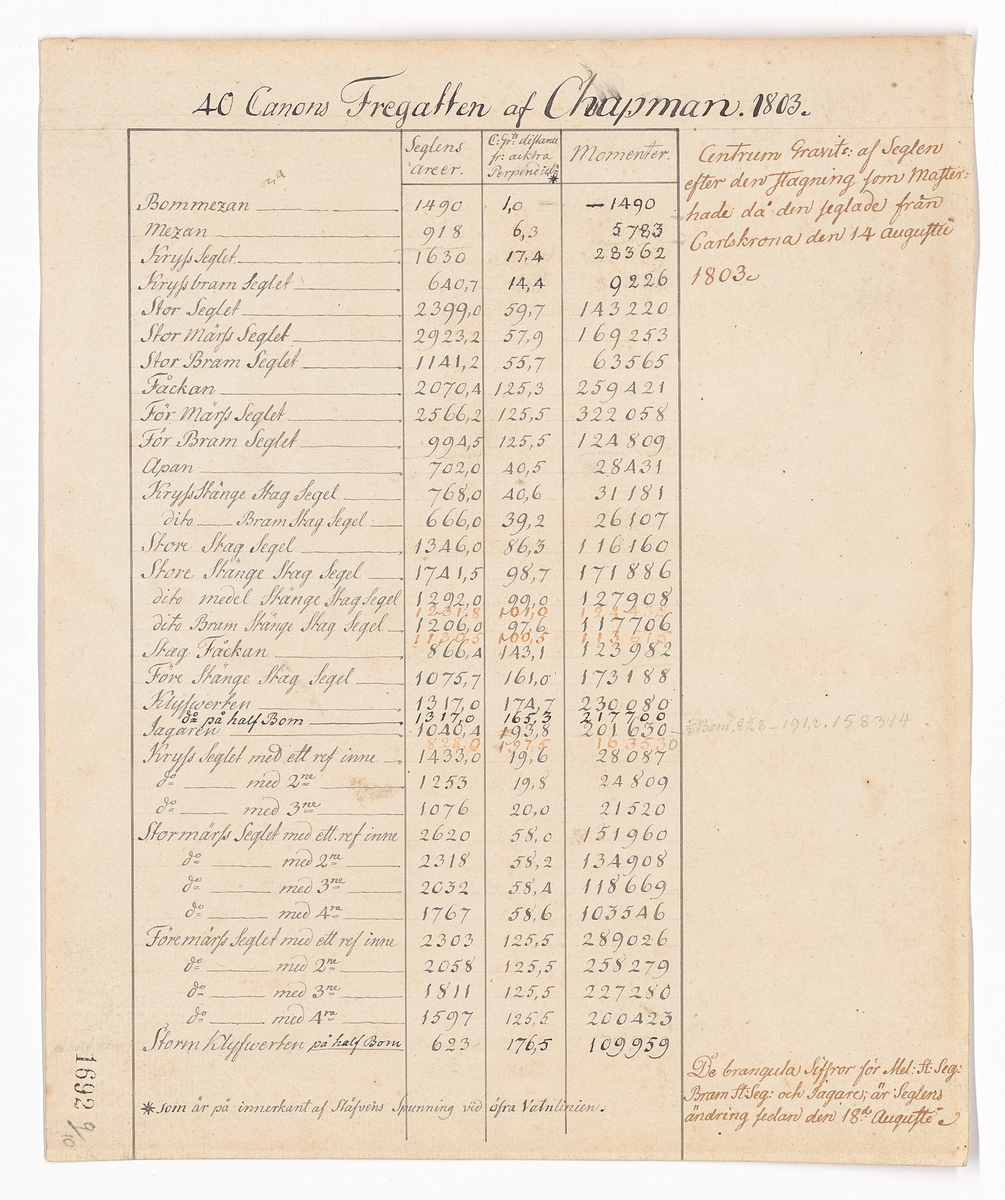 40 Canons Fregatten af Chapman. 1803.
Seglens areer. C: Grts distance fr: acktra Perpendicl: * Momenter.
Bommezan 1490 1,0 —1490
Mezan 918 6,3 5783
Kryss Seglet 1630 17,4 28362
Kryssbram Seglet 640,7 14,4 9226
Stor Seglet 2399,0 59,7 143220
Stor Märss Seglet 2923,2 57,9 169253
Stor Bram Seglet 1141,2 55,7 63565
Fåckan 2070,4 125,3 259421
För Märss Seglet 2566,2 125,5 322058
För Bram Seglet 994,5 125,5 124809
Apan 702,0 40,5 28431
Kryss Stänge Stag Segel 768,0 40,6 31181
dito Bram Stag Segel 666,0 39,2 26107
Store Stag Segel 1346,0 86,3 116160
Store Stänge Stag Segel 1741,5 98,7 171886
dito medel Stänge Stag Segel 1292,0 99,0 127908
1231,8 101,0
dito Bram Stänge Stag Segel 1206,0 97,6 117706
1130,5 100,5 113615
Stag Fåckan 866,4 143,1 123982
Före Stänge Stag Segel 1075,7 161,0 173188
Klyfwerten 1317,0 174,7 230080
do på half Bom 1317,0 165,3 217700
Jagaren 1040,4 193,8 201630
828,0 197,5 163530
Kryss Seglet med ett ref inne 1433,0 19,6 28087
do med 2ne 1253 19,8 24809
do med 3ne 1076 20,0 21520
Stormärss Seglet med ett ref inne 2620 58,0 151960
do med 2ne 2318 58,2 134908
do med 3ne 2032 58,4 118669
do med 4ra 1767 58,6 103546
Föremärss Seglet med ett ref inne 2303 125,5 289026
do med 2ne 2058 125,5 258279
do med 3ne 1811 125,5 227280
do med 4ra 1597 125,5 200423
Storm Klyfwerten på half Bom 623 176,5 109959
* som är på innerkant af Stäfvens Spunning vid öfra Vatnlinien.
Centrum Gravit: af Seglen
efter den stagning som Master=
hade då den seglade från
Carlskrona den 14 Augustii
1803.
Bom. 828 – 191,2. 158314
De brangula Siffror för Mel: St: Seg:
Bram St: Seg: och Jagare; är Seglens
ändring sedan den 18de Augustii.
1692
9/10